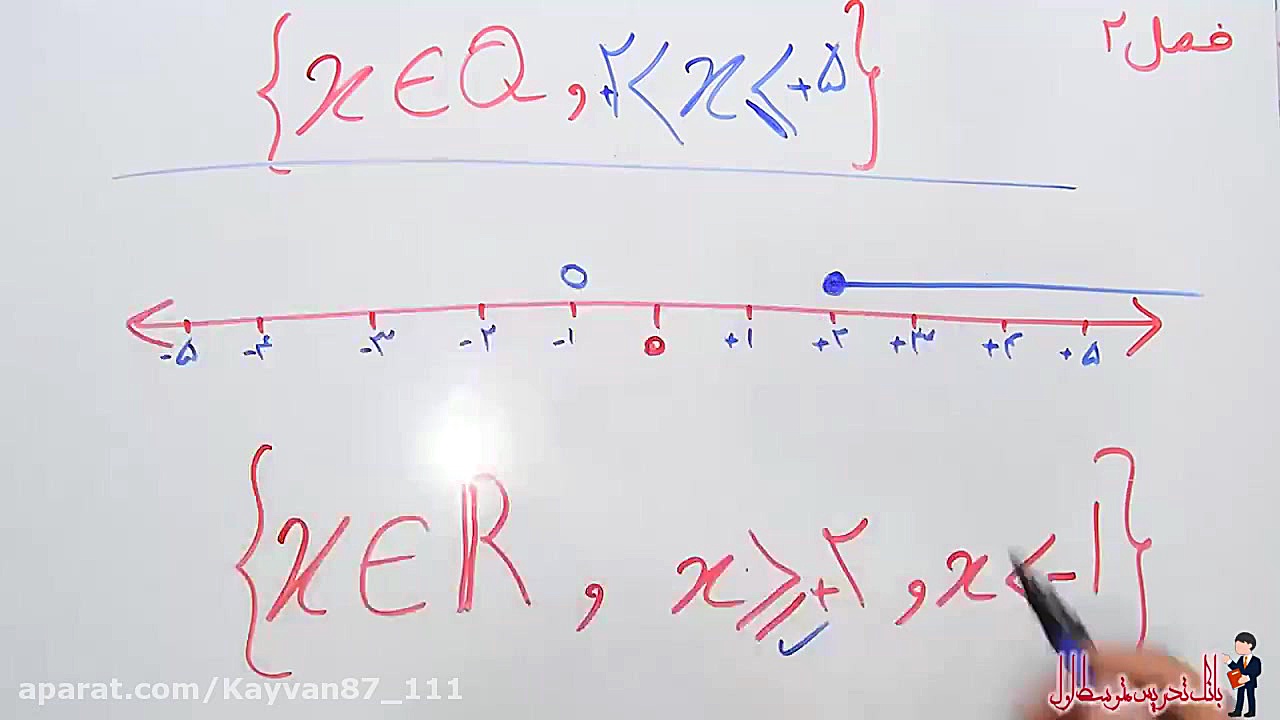 فصل ۲
{x ∈ Q , +۲ < x ≤ +۵}
-۵ -۴ -۳ -۲ -۱ ۰ +۱ +۲ +۳ +۴ +۵
{x ∈ ℝ , x ≥ +۲ , x < -۱}
aparat.com/Kayvan87_111
بانک تدریس متوسطه اول